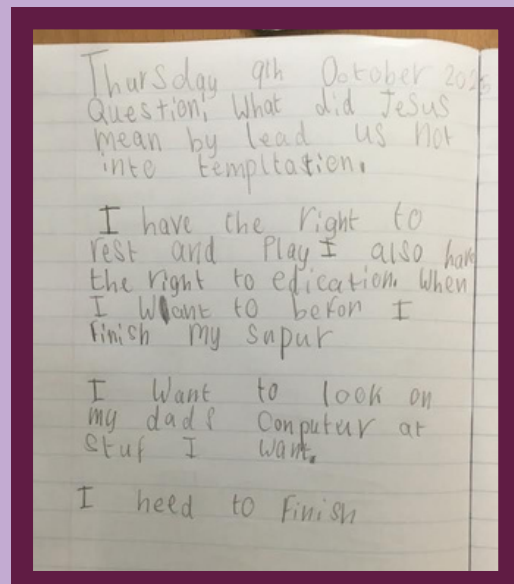 Thursday 9th Ooctober 2025
Question; What did Jesus
mean by lead us not
into templtation.
I have the right to
rest and Play I also have
the right to edication. When
I Want to befor I
Finish my supur
I Want to look on
my dads Conputur at
stuf I want.
I need to Finish